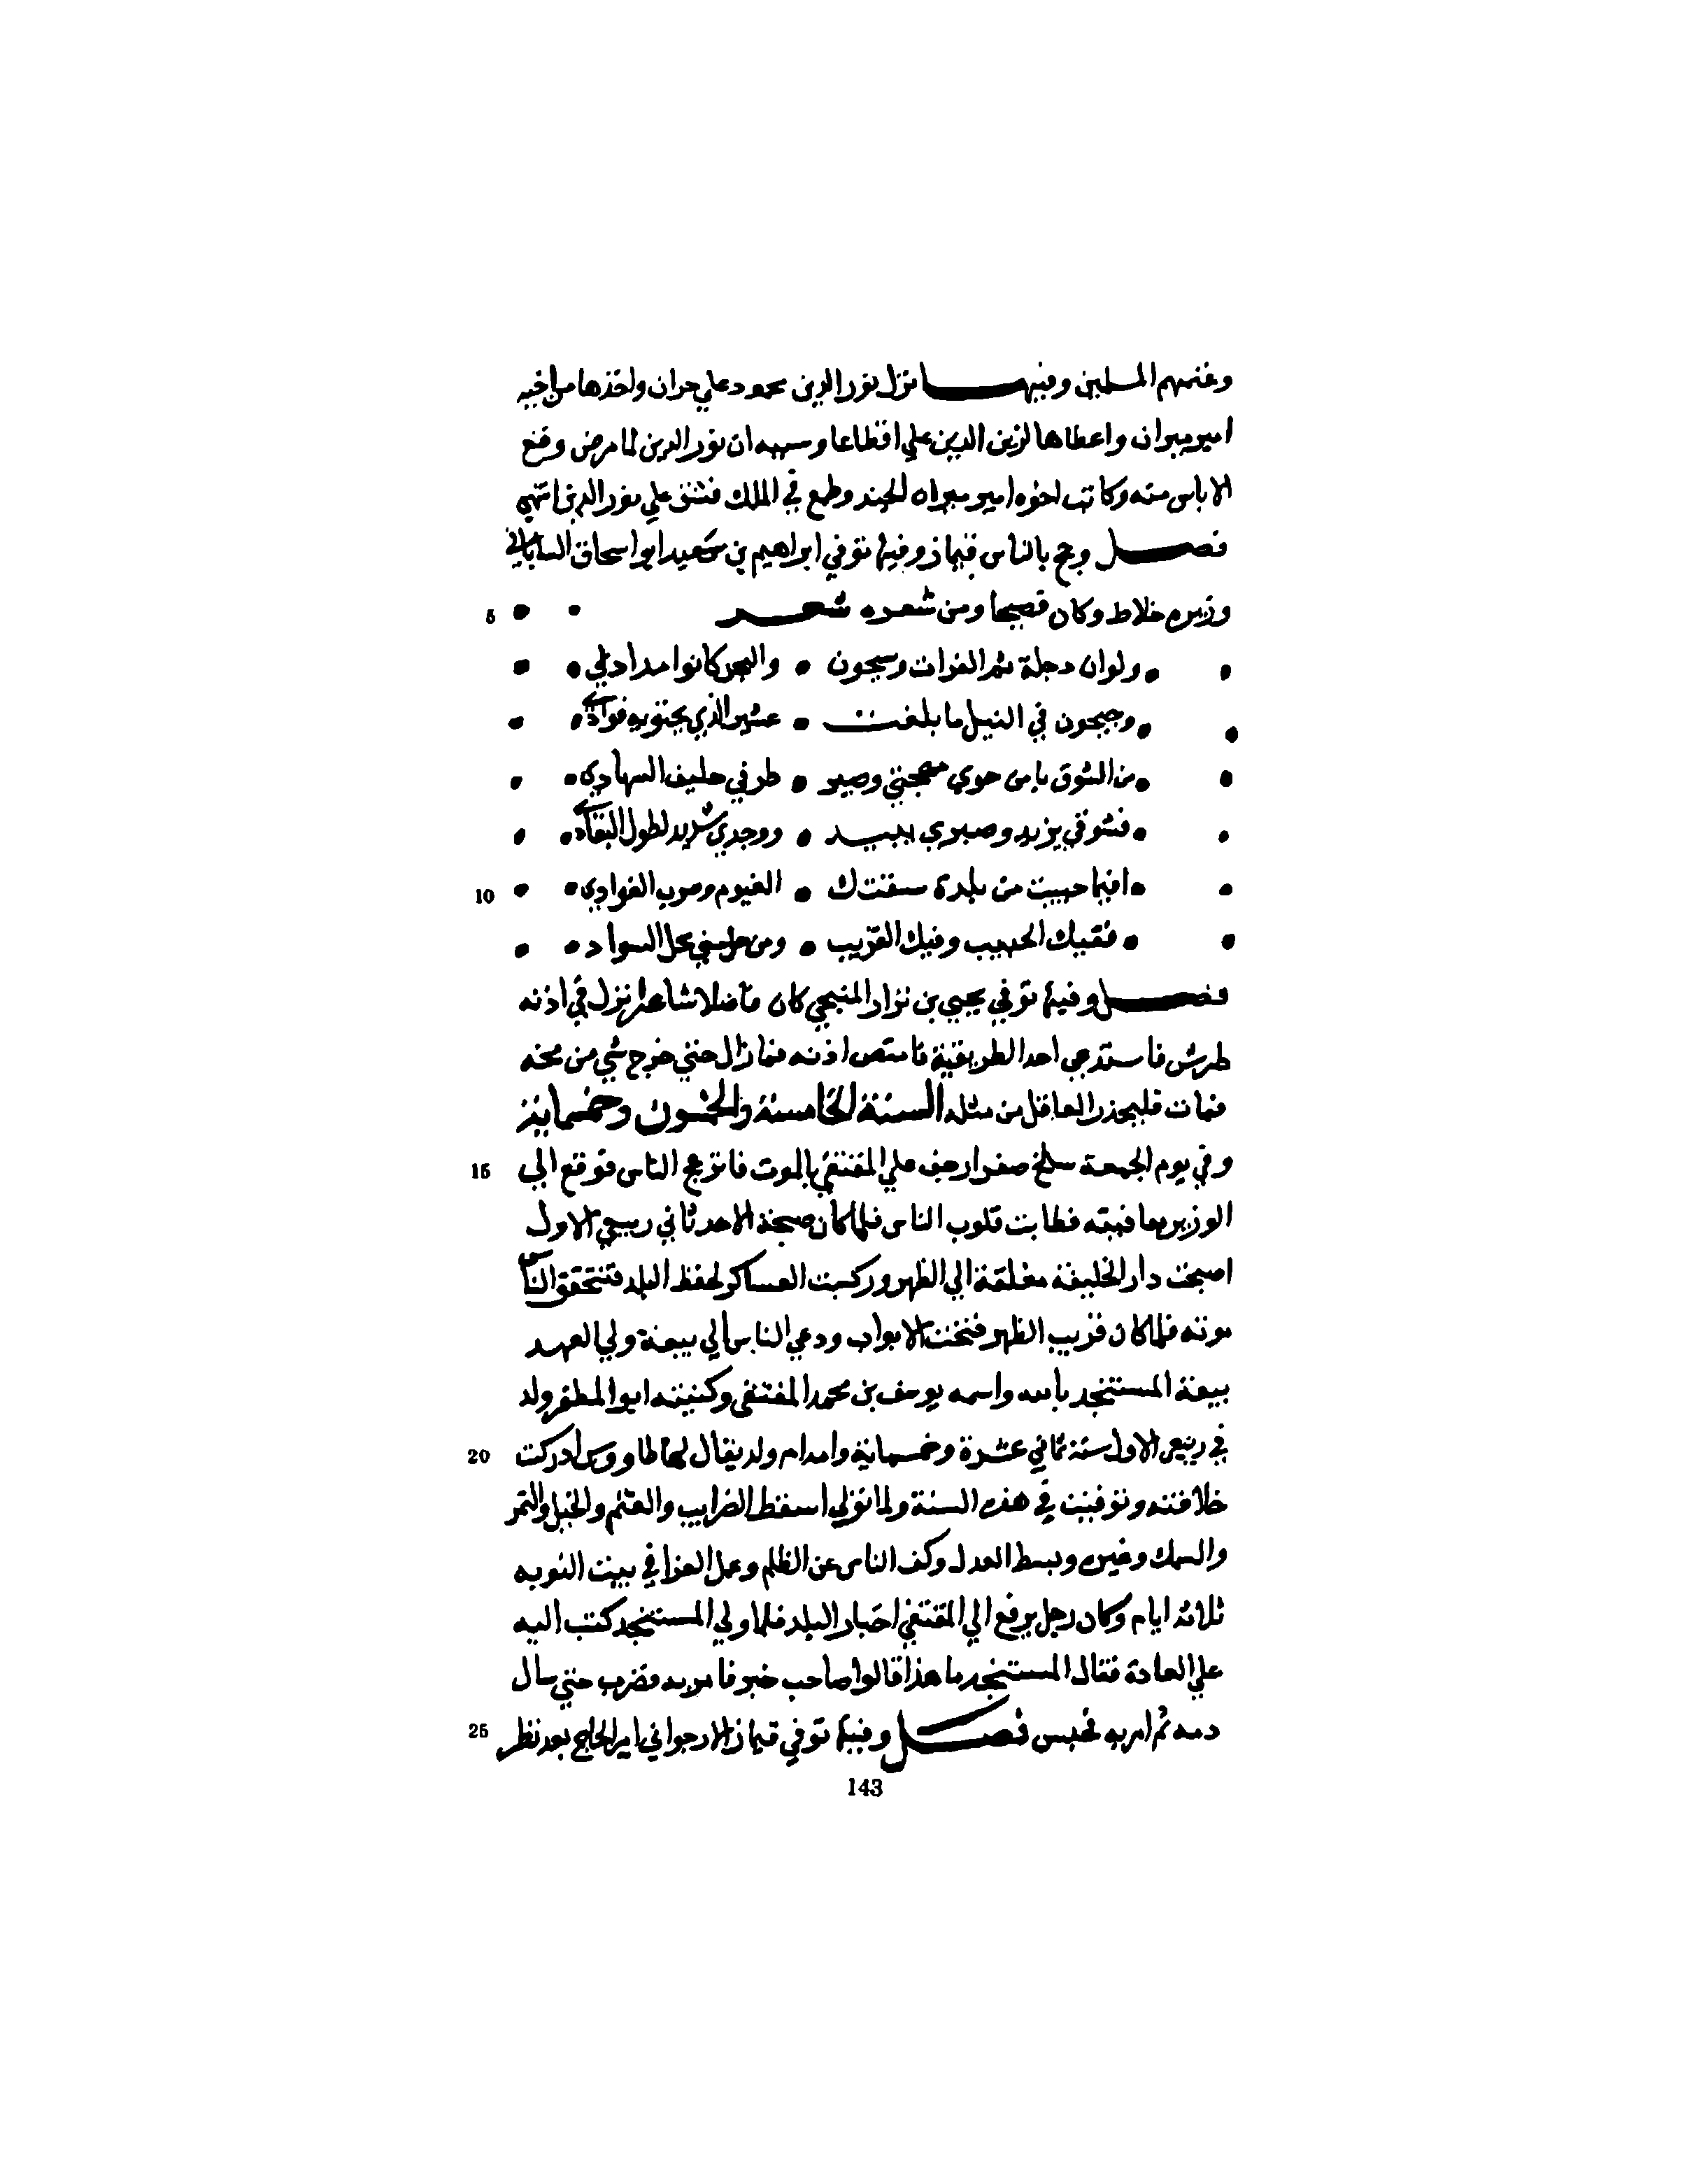 وغنمهم المسلمين وفيها نزل نور الدين محمود علي حران واخذها من اخيه
امير ميران واعطاها لزين الدين علي اقطاعا وسببه ان نور الدين لما مرض وقع
الاياس منه وكاتب اخوه امير ميران الجند وطمع في الملك فشق علي نور الدين انتهي
فصل وحج بالناس قيماز وفيها توفي ابراهيم بن سعيد ابو اسحاق
5 وزيره خلاط وكان فصيحا ومن شعره شعر
ولوان دجلة ثم الفرات وسيحون • والبحر كانوا مدادي
وجيحون في النيل ما بلغت • عشير الذي يحتويه فوادي
من الشوق يا من حوي مهجتي وصير • طرفي حليف السهادي
فشوقي يزيد وصبري يبيد • ووجدي شديد لطول البعادي
10 افيا حبيت من بلدة سقتك • الغيوم وصوب الغوادي
ففيك الحبيب وفيك القريب • ومن طرفي محل السواد
فصل وفيها توفي يحيي بن نزار المنبجي كان فاضلا شاعرا نزل في اذنه
طرش فاستدعي احد الطريقية فامتص اذنه فما زال حتي خرج شي من مخه
فمات فليحذر العاقل من مثله السنة الخامسة والخمسون وخمسماية
15 وفي يوم الجمعة سلخ صفر ارجف علي المقتفي بالموت فانزعج الناس فوقع الي
الوزير بعافيته فطابت قلوب الناس فلما كان صبيحة الاحد ثاني ربيع الاول
اصبحت دار الخليفة مغلقة الي الظهر وركبت العساكر لحفظ البلد فتحقق الناس
موته فلما كان قريب الظهر فتحت الابواب ودعي الناس الي بيعة ولي العهد
بيعة المستنجد بالله واسمه يوسف بن محمد المقتفي وكنيته ابو المظفر ولد
20 في ربيع الاول سنة ثماني عشرة وخمسماية وامه ام ولد يقال لها طاووس ادركت
خلافته وتوفيت في هذه السنة ولما تولي اسقط الضرايب والغنم والخيل والتمر
والسمك وغيره وبسط العدل وكف الناس عن الظلم وعمل العزا في بيت النوبه
ثلاثة ايام وكان رجل يرفع الي المقتفي اخبار البلد فلما ولي المستنجد كتب اليه
علي العادة فقال المستنجد ما هذا قالوا صاحب خبر فامر به فضرب حتي سال
25 دمه ثم امر به فحبس فصل وفيها توفي قيماز الارجواني امير الحاج بعد نظر
143